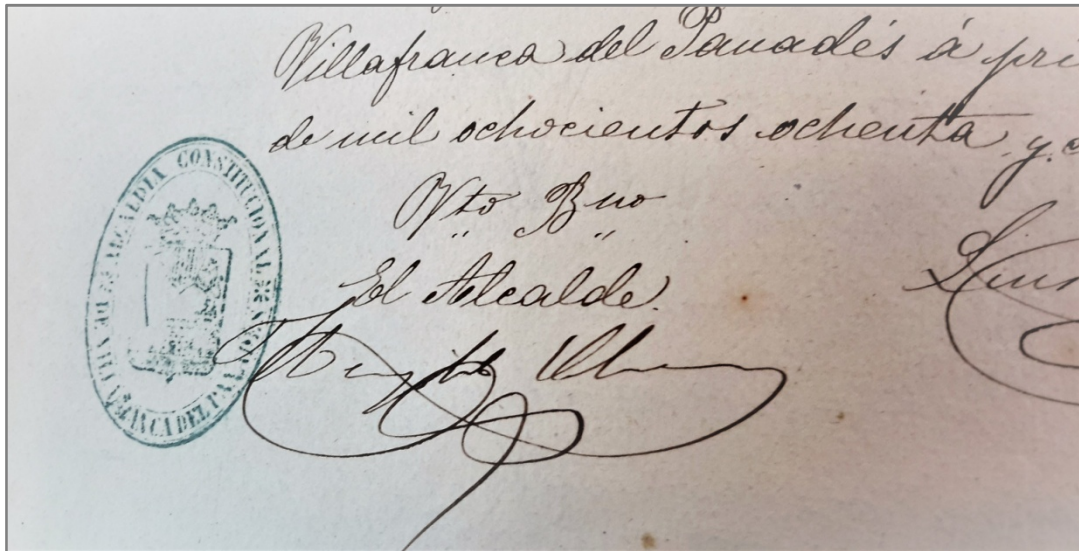 Villafranca del Panadés á pri
de mil ochocientos ochenta y c
Vto Bno
El Alcalde
Luis
ALCALDIA CONSTITUCIONAL DE VILLAFRANCA DEL PANADES